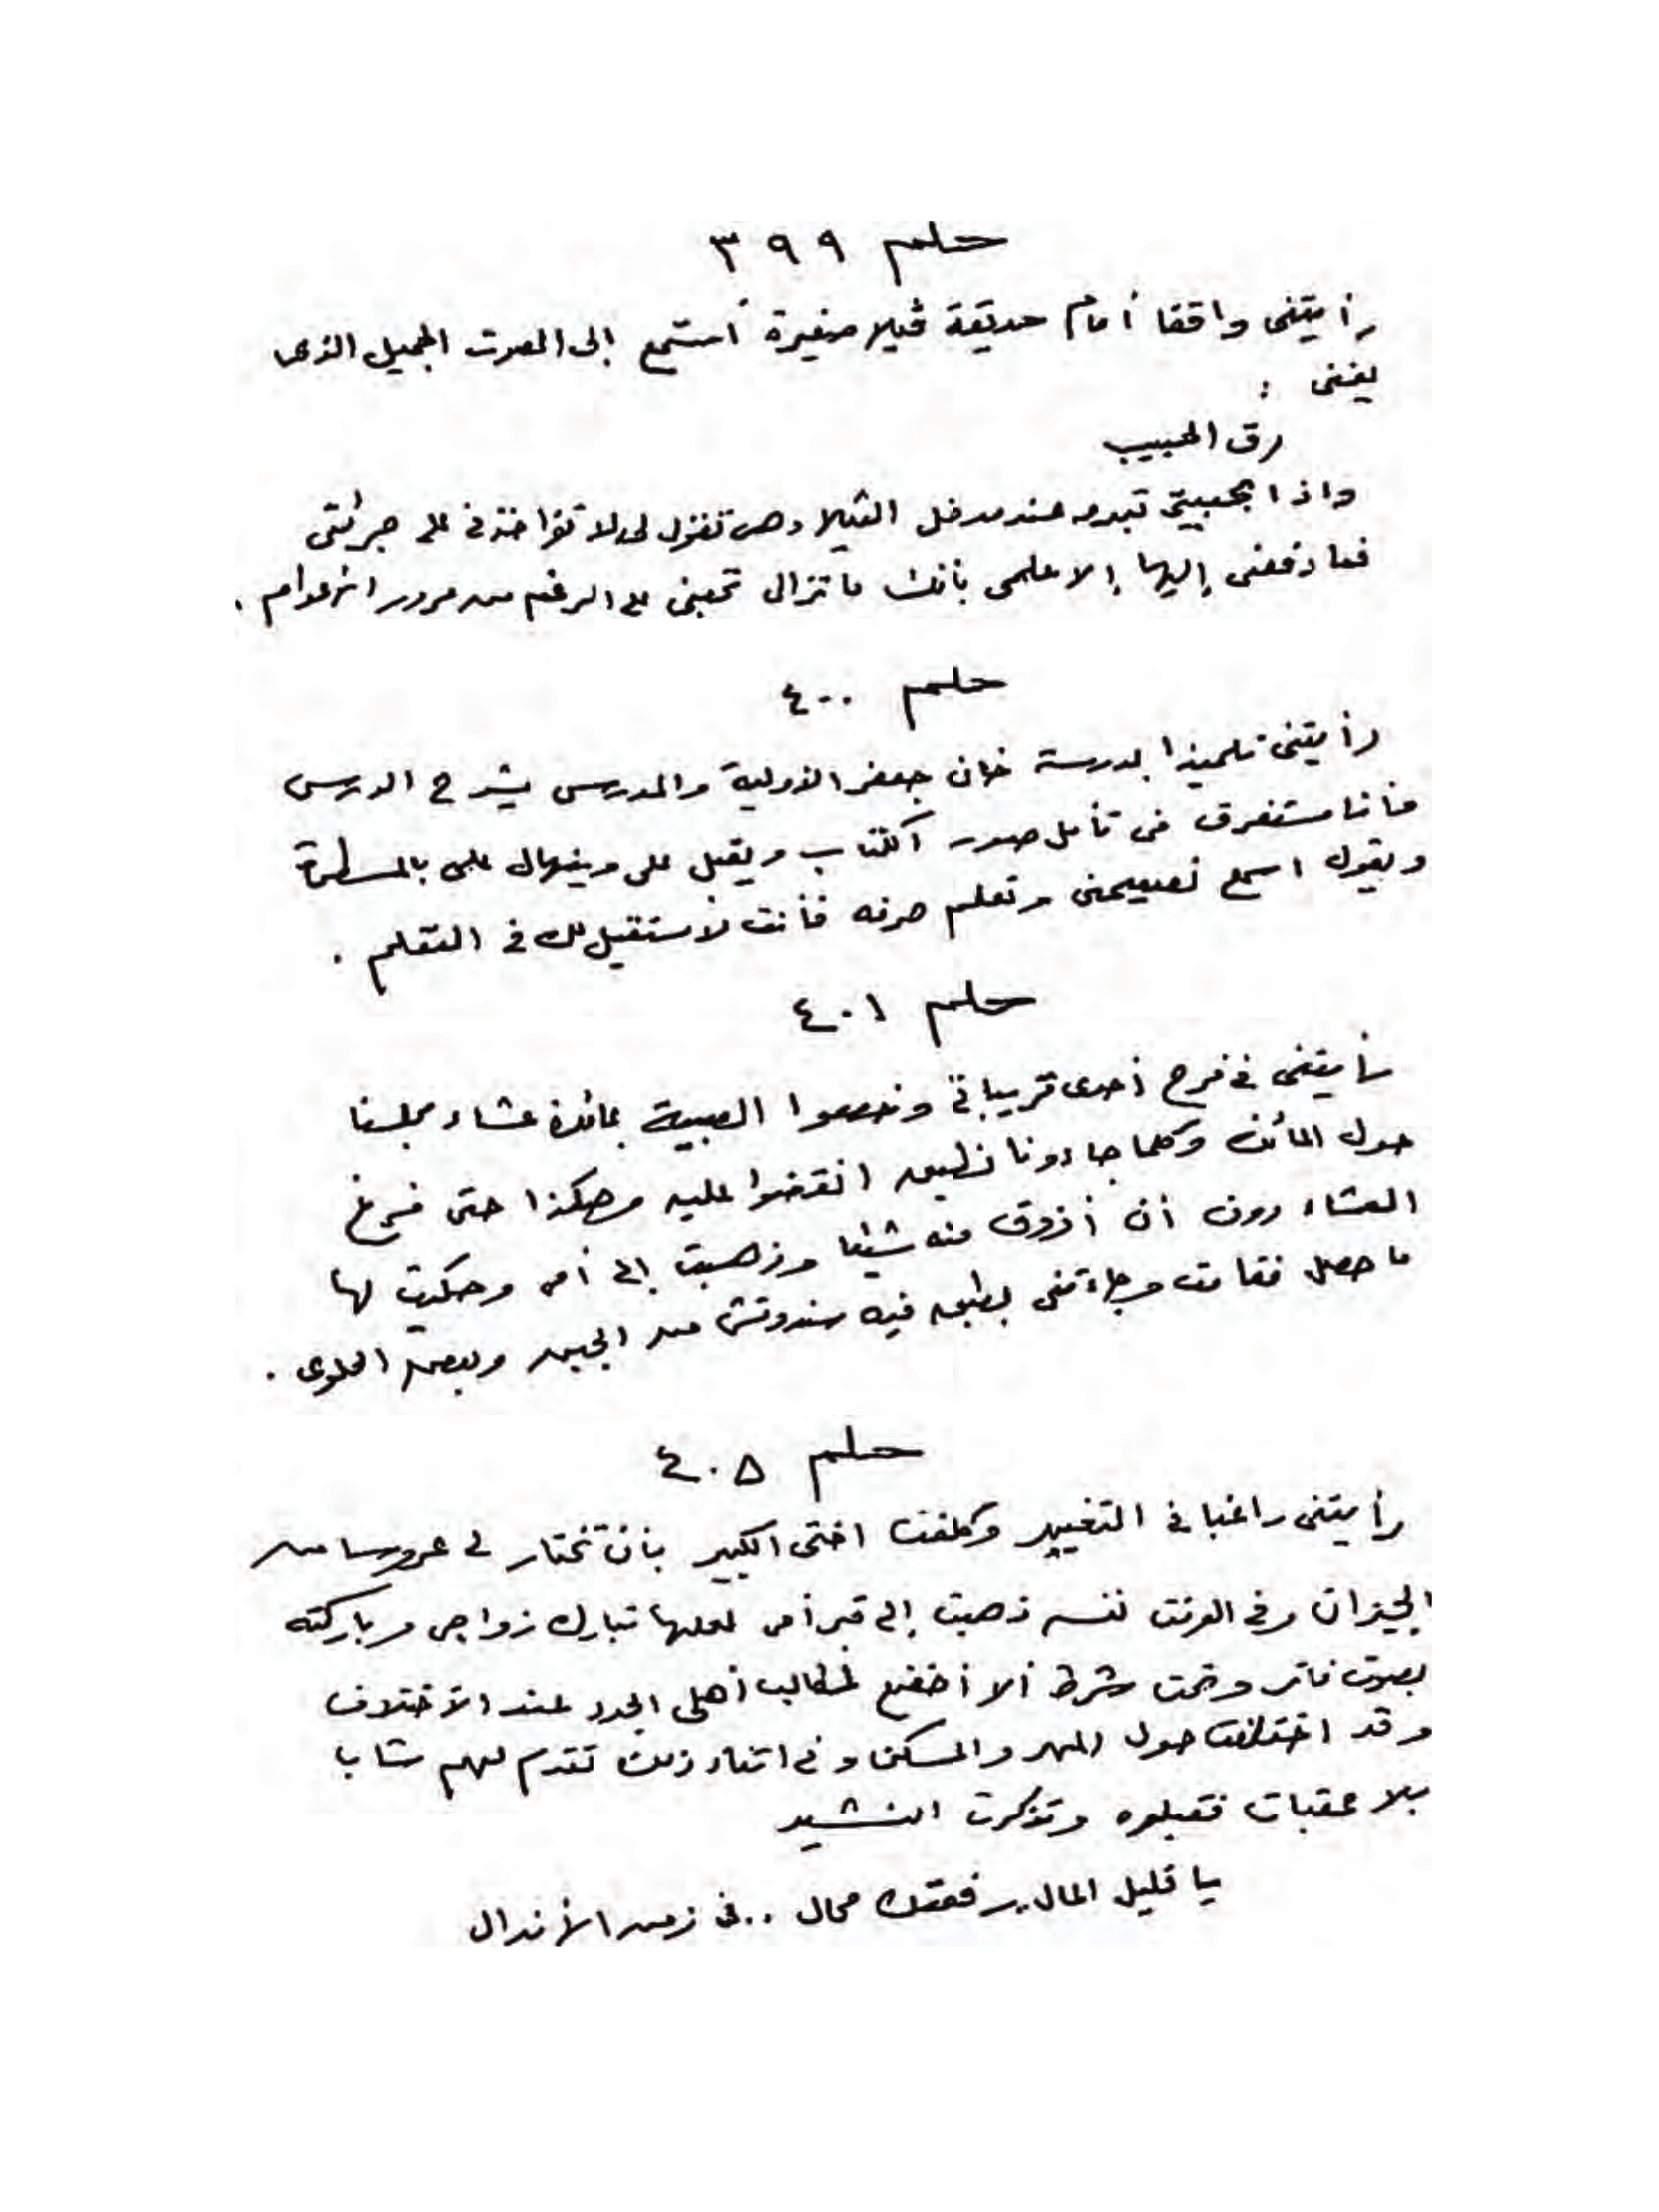 حلم ٣٩٩
رأيتنى واقفا أمام حديقة ڤيلا صغيرة أستمع إلى الصوت الجميل الذى
يغنى :
رق الحبيب
واذا بحبيبتى تبدو عند مدخل الڤيلا وهى تقول لى لا تؤاخذنى على جرأتى
فما دفعنى إليها إلا علمى بأنك ما تزال تحبنى على الرغم من مرور الأعوام .
حلم ٤٠٠
رأيتنى تلميذا بمدرسة خان جعفر الأولية والمدرس يشرح الدرس
فأنا مستغرق فى تأمل صور الكتاب ويقبل على وينهال على بالمسطرة
ويقول اسمع نصيحتى وتعلم حرفه فأنت لا مستقبل لك فى التعلم .
حلم ٤٠١
رأيتنى فى فرح أحدى قريباتى وخصصوا الصبية بمائدة عشاء مجلسنا
حول المائدة وكلما جاءونا بطبق انقضوا عليه وهكذا حتى فرغ
العشاء دون أن أذوق منه شيئا وذهبت إلى أمى وحكيت لها
ما حصل فقامت وجاءتنى بطبق فيه سندوتش من الجبن وبعض الحلوى .
حلم ٤٠٥
رأيتنى راغبا فى التغيير وكلفت اختى الكبير بأن تختار لى عروسا من
الجيران وفى الوقت نفسه ذهبت إلى قبر أمى لعلها تبارك زواجى وباركته
بصوت فاتر وتحت شرط ألا أخضع لمطالب أهلى الجدد عند الأختلاف
وقد اختلفت حول المهر والمسكن وفى اثناء ذلك تقدم لهم شاب
بلا عقبات فقبلوه وتذكرت النشيد
يا قليل المال رفعتك محال .. فى زمن الأندال